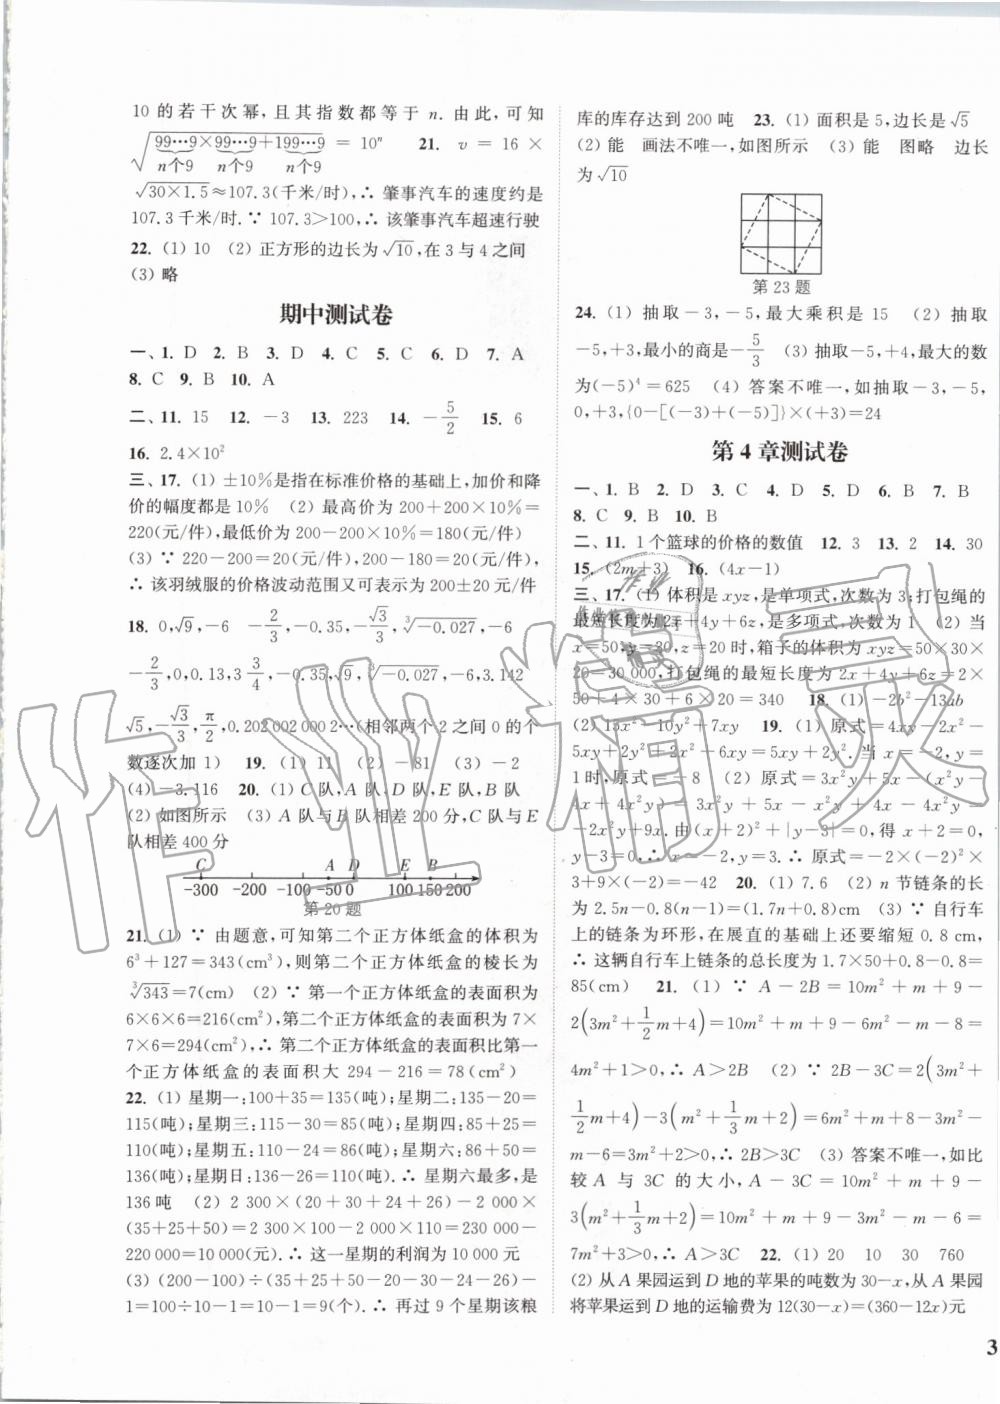 10 的若干次幂,且其指数都等于 n. 由此,可知
√(99…9×99…9+199…9) = 10ⁿ 21. v = 16 ×
n个9 n个9 n个9
√(30×1.5)≈107.3(千米/时),∴ 肇事汽车的速度约是
107.3 千米/时. ∵ 107.3>100,∴ 该肇事汽车超速行驶
22. (1) 10 (2) 正方形的边长为√10,在 3 与 4 之间
(3) 略
期中测试卷
一、1. D 2. B 3. D 4. C 5. C 6. D 7. A
8. C 9. B 10. A
二、11. 15 12. -3 13. 223 14. -5/2 15. 6
16. 2.4×10²
三、17. (1) ±10%是指在标准价格的基础上,加价和降
价的幅度都是 10% (2) 最高价为 200+200×10%=
220(元/件),最低价为 200-200×10%=180(元/件)
(3) ∵ 220-200=20(元/件),200-180=20(元/件),
∴ 该羽绒服的价格波动范围又可表示为 200±20 元/件
18. 0,√9,-6 -2/3,-0.35,-√3/3,∛-0.027,-6
-2/3,0,0.13,3/4,-0.35,√9,∛-0.027,-6,3.142
√5,-√3/3,π/2,0.202 002 000 2…(相邻两个 2 之间 0 的个
数逐次加 1) 19. (1) 11 (2) -81 (3) -2
(4) -3.116 20. (1) C 队,A 队,D 队,E 队,B 队
(2) 如图所示 (3) A 队与 B 队相差 200 分,C 队与 E
队相差 400 分
C A D E B
-300 -200 -100 -50 0 100 150 200
第 20 题
21. (1) ∵ 由题意,可知第二个正方体纸盒的体积为
6³+127=343(cm³),则第二个正方体纸盒的棱长为
∛343=7(cm) (2) ∵ 第一个正方体纸盒的表面积为
6×6×6=216(cm²),第二个正方体纸盒的表面积为 7×
7×6=294(cm²),∴ 第二个正方体纸盒的表面积比第一
个正方体纸盒的表面积大 294-216=78(cm²)
22. (1) 星期一:100+35=135(吨);星期二:135-20=
115(吨);星期三:115-30=85(吨);星期四:85+25=
110(吨);星期五:110-24=86(吨);星期六:86+50=
136(吨);星期日:136-26=110(吨). ∴ 星期六最多,是
136 吨 (2) 2 300×(20+30+24+26)-2 000×
(35+25+50)=2 300×100-2 000×110=230 000-
220 000=10 000(元). ∴ 这一星期的利润为 10 000 元
(3) (200-100)÷(35+25+50-20-30-24-26)-
1=100÷10-1=10-1=9(个). ∴ 再过 9 个星期该粮
库的库存达到 200 吨 23. (1) 面积是 5,边长是√5
(2) 能 画法不唯一,如图所示 (3) 能 图略 边长
为√10
第 23 题
24. (1) 抽取-3,-5,最大乘积是 15 (2) 抽取
-5,+3,最小的商是-5/3 (3) 抽取-5,+4,最大的数
为(-5)⁴=625 (4) 答案不唯一,如抽取-3,-5,
0,+3,{0-[(-3)+(-5)]}×(+3)=24
第 4 章测试卷
一、1. B 2. D 3. C 4. D 5. D 6. B 7. B
8. C 9. B 10. B
二、11. 1 个篮球的价格的数值 12. 3 13. 2 14. 30
15. (2m+3) 16. (4x-1)
三、17. (1) 体积是 xyz,是单项式,次数为 3;打包绳的
最短长度为 2x+4y+6z,是多项式,次数为 1 (2) 当
x=50,y=30,z=20 时,箱子的体积为 xyz=50×30×
20=30 000,打包绳的最短长度为 2x+4y+6z=2×
50+4×30+6×20=340 18. (1) -2b²-13ab
(2) 13x²-10y²+7xy 19. (1) 原式=4xy-2x²-
5xy+2y²+2x²-6xy=5xy+2y². 当 x=-2,y=
1时,原式=-8 (2) 原式=3x²y+5x-(x²y-
4x+4x²)-x²y=3x²y+5x-x²y+4x-2x²y-
-2x²y+9x. 由(x+2)²+|y-3|=0,得 x+2=0,
y-3=0,∴ x=-2,y=3. ∴ 原式=-2×(-2)²×
3+9×(-2)=-42 20. (1) 7.6 (2) n 节链条的长
为 2.5n-0.8(n-1)=(1.7n+0.8)cm (3) ∵ 自行车
上的链条为环形,在展直的基础上还要缩短 0.8 cm,
∴ 这辆自行车上链条的总长度为 1.7×50+0.8-0.8=
85(cm) 21. (1) ∵ A-2B=10m²+m+9-
2(3m²+1/2m+4)=10m²+m+9-6m²-m-8=
4m²+1>0,∴ A>2B (2) ∵ 2B-3C=2(3m²+
1/2m+4)-3(m²+1/3m+2)=6m²+m+8-3m²-
m-6=3m²+2>0,∴ 2B>3C (3) 答案不唯一,如比
较 A 与 3C 的大小,A-3C=10m²+m+9-
3(m²+1/3m+2)=10m²+m+9-3m²-m-6=
7m²+3>0,∴ A>3C 22. (1) 20 10 30 760
(2) 从 A 果园运到 D 地的苹果的吨数为 30-x,从 A 果园
将苹果运到 D 地的运输费为 12(30-x)=(360-12x)元
3
作业精灵